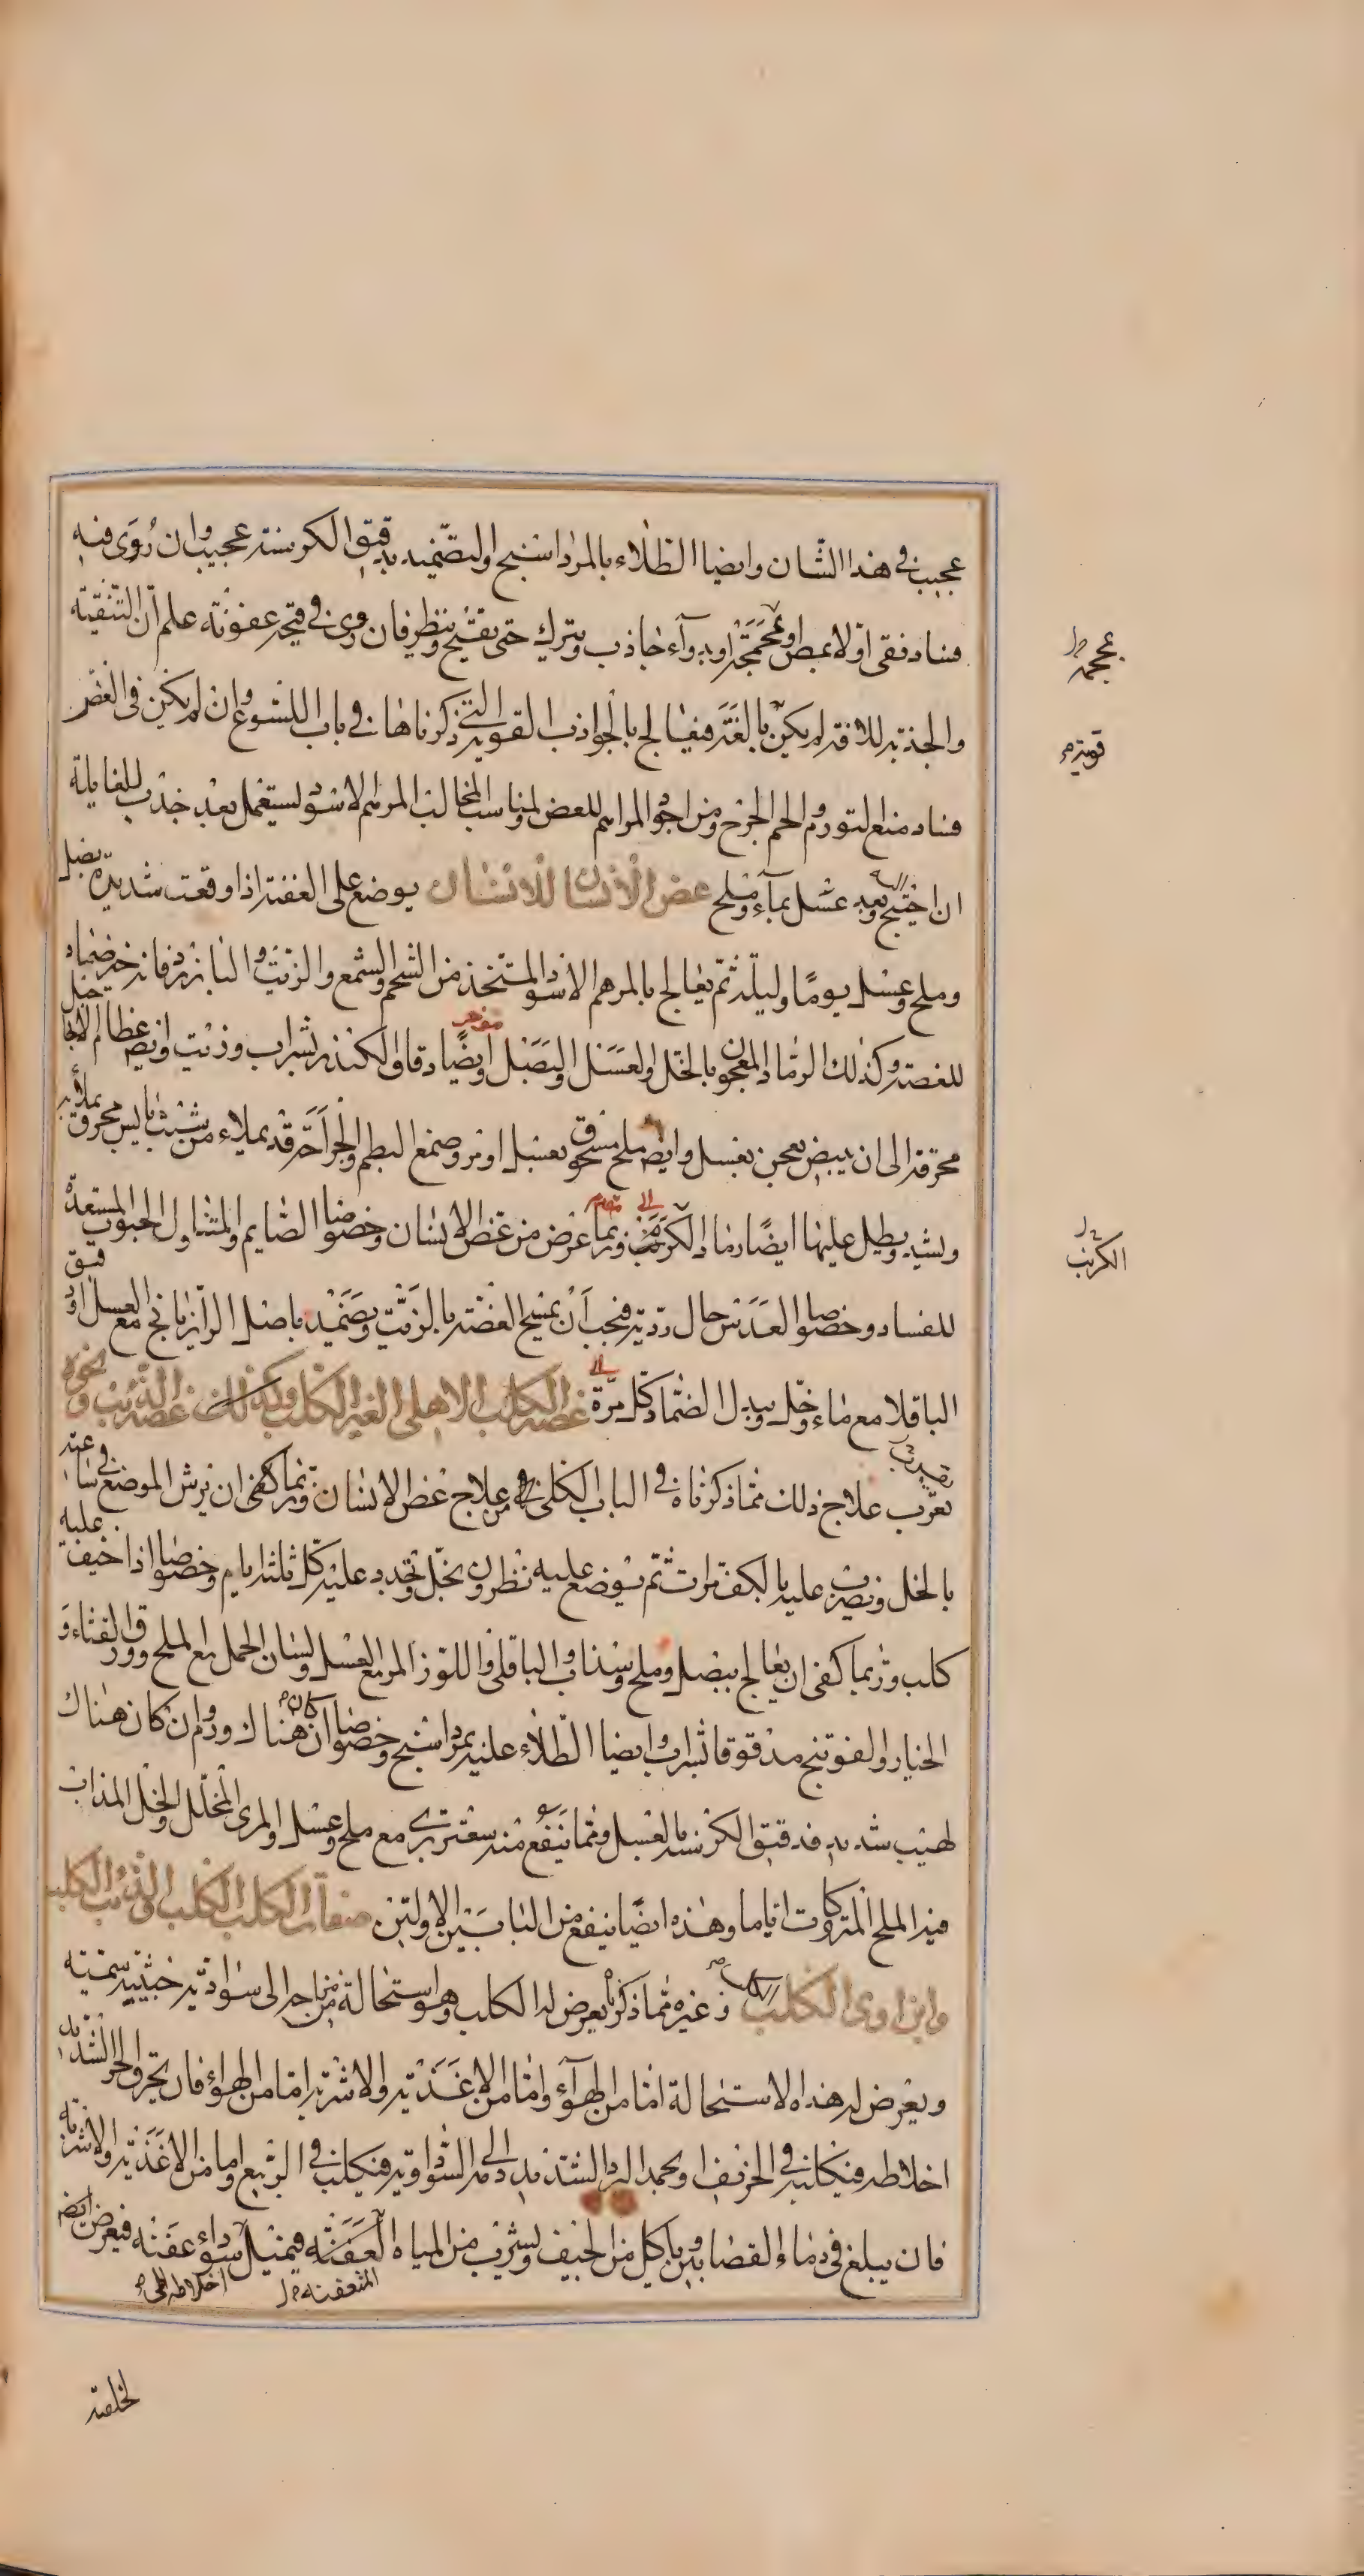 عجيب في هذا الشان وايضا الطلاء بالمرداسنج او لتضميد بدقيق الكرسنة عجيب وان رُؤى فيه
فساد نفى اوّلا بمص او بمحجمة او بدوآء جاذب ويترك حتى يقيّح وينظر فان روى في قيحه عفونة علم ان التنقية
والجذبة للافة لم يكن بالغة فيعالج بالجواذب القوية التي ذكرناها في باب اللسوع وان لم يكن في العض
فساد منع لتورم الحم الجرح ومن اجود المراهم للعض لمناسب المخالب المرهم الاسود ليستعمل بعد جذب للغايلة
ان احتيج اليه وبعد غسل بمآء وملح عض الانسان للانسان يوضع على العضة اذا وقعت شديدة بصل
وملح وعسل يومًا وليلة ثم يعالج بالمرهم الاسود المتخذ من الشحم والشمع والزيت والبارزد فانه خير ضماد
للعضة وكذلك الرماد المعجون بالخل والعسل والبصل ايضًا دقاق الكندر بشراب وزيت وايضا عظام الانا جبل
محرقة الى ان يبيض يعجن بعسل وايضا ملح مسحوق بعسل او مر وصمغ البطم والجراحة قد يملاء من شبث يابس محرق بملأ به
ويشد ويطل عليها ايضًا رماد الكرنب وربما عرض من عض الانسان وخصوصا الصايم والمتناول الحبوب المستعدة
للفساد وخصوصا العدس حال ردية فيجب أن يمسح العضة بالزيت ويضمد باصل الرازيانج مع العسل او دقيق
الباقلا مع ماء وخل ويبدل الضماد كل مرة عضة الكلب الاهلى الغير الكلب وكذلك عضة الذئب ونحوه
تعرّب علاج ذلك مما ذكرناه في الباب الكلى في من علاج عض الانسان وربّما كفى ان يرش الموضع في ساعته
بالخل ويضرب عليه بالكف مرات ثم يوضع عليه نطرون بخل وتجدد عليه كل ثلثة ايام وخصوصا اذا خيف عليه
كلب وربما كفى ان يعالج ببصل وملح وسذاب والباقلى واللوز المر مع العسل ولسان الحمل مع الملح وورق القثاء و
الخيار والفوتنج مدقوقا بشراب وايضا الطلاء عليه بمرداسنج وخصوصا ان كان هناك ورم وان كان هناك
لهيب شديد فدقيق الكرسنة بالعسل ومما ينفع منه سعتر بري مع ملح وعسل والمرى المخلل والخل المذاب
فيه الملح المتروكات اياما وهذه ايضًا ينفع من البابين الاولين صفات الكلب الكلب والذئب الكلب
وابن اوى الكلب وغيره مما ذكرنا يعرض له الكلب وهو استحالة من مزاجه الى سوادية خبيثة سمية
ويعرض له هذه الاستحالة امّا من الهوآء وامّا من الاغذية والاشربة امّا من الهواء فان يحرق الحر الشديد
اخلاطه فيكلب في الخريف او يجمد البرد الشديد دمه الى السوداوية فيكلب في الربيع واما من الاغذية والاشربة
فان يبلغ في دماء القصابين ويأكل من الجيف ويشرب من المياه العفنة فيميل سوداء عفنه فيعرض ايضا
المتعفنة اخلاطه الى
لخلقته
محجمة
قوية
الكرنب